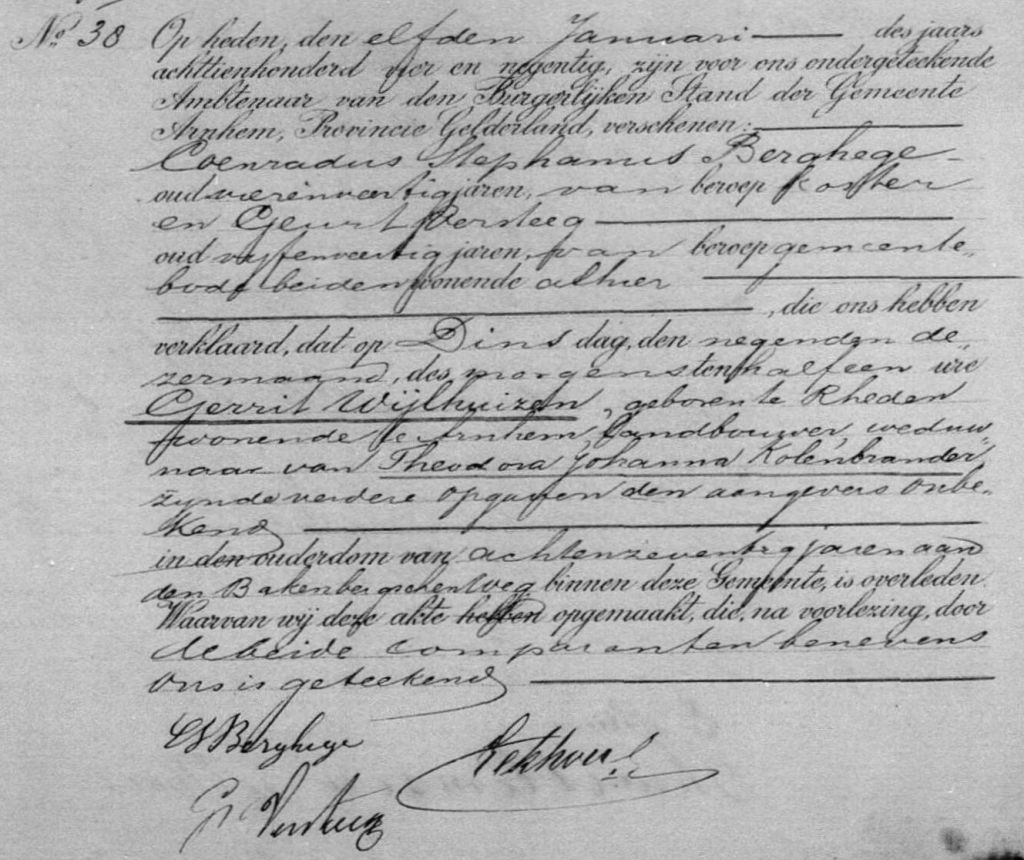 No. 38 Op heden, den elfden Januari des jaars
achttienhonderd vier en negentig, zijn voor ons ondergeteekende
Ambtenaar van den Burgerlijken Stand der Gemeente
Arnhem, Provincie Gelderland, verschenen:
Coenradus Stephanus Berghege
oud vierenveertig jaren, van beroep koster
en Geurt Versteeg
oud vijfenveertig jaren, van beroep gemeente„
bode beiden wonende alhier
, die ons hebben
verklaard, dat op Dinsdag, den negenden de„
zer maand, des morgens ten half een ure
Gerrit Wijlhuizen, geboren te Rheden
wonende te Arnhem, landbouwer, weduw„
naar van Theodora Johanna Kolenbrander,
zijnde verdere opgaven den aangevers onbe„
kend
in den ouderdom van achtenzeventig jaren aan
den Bakenbergschenweg binnen deze Gemeente, is overleden.
Waarvan wij deze akte hebben opgemaakt, die, na voorlezing, door
de beide comparanten benevens
ons is geteekend
CS Berghege
G Versteeg